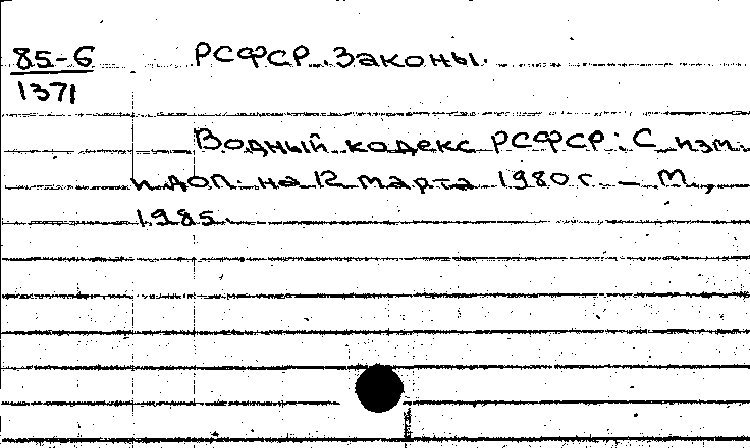 85-6
1371
РСФСР. Законы.
Водный кодекс РСФСР: С изм.
и доп. на 12 марта 1980 г. – М.,
1985.